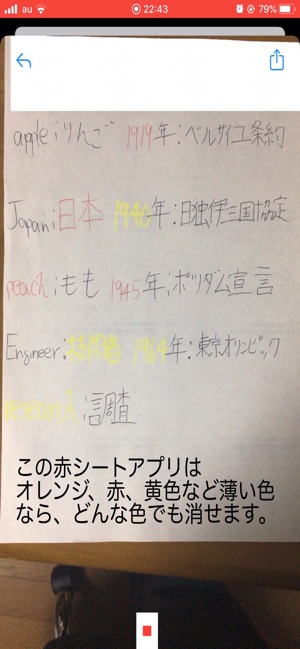 au 22:43 79%
apple:りんご 1919年:ベルサイユ条約
Japan:日本 1940年:日独伊三国協定
peach:もも 1945年:ポツダム宣言
Engineer:技術者 1964年:東京オリンピック
:調査
この赤シートアプリは
オレンジ、赤、黄色など薄い色
なら、どんな色でも消せます。